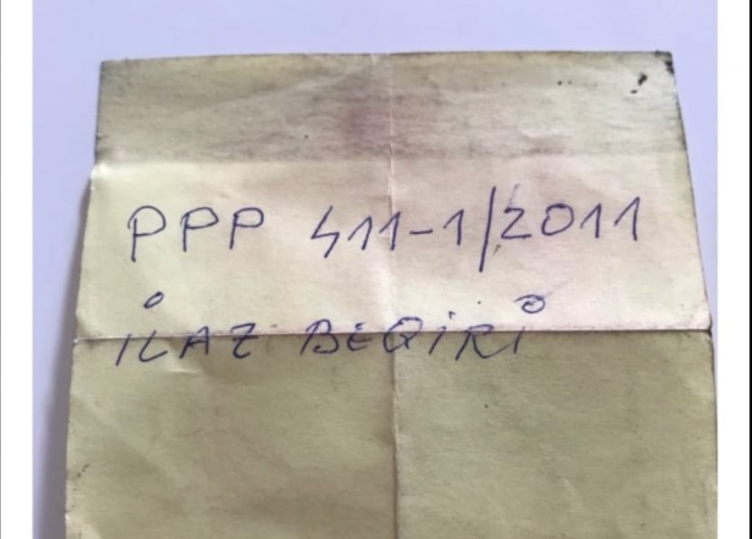 PPP 411-1/2011
iLAZ BEQiRi